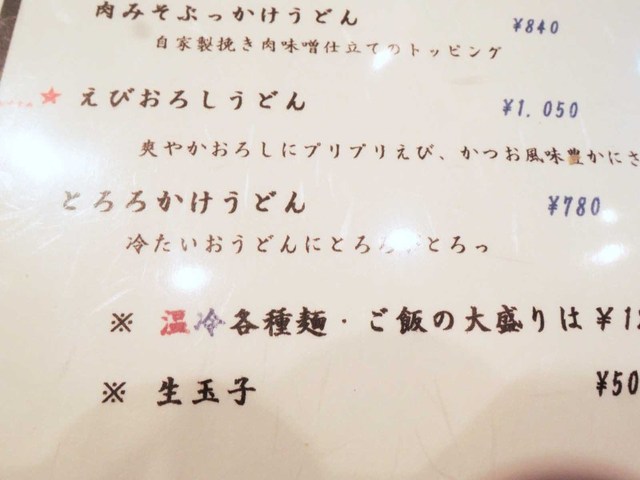 肉みそぶっかけうどん ¥840
自家製挽き肉味噌仕立てのトッピング
★ えびおろしうどん ¥1.050
爽やかおろしにプリプリえび、かつお風味豊かにさ
とろろかけうどん ¥780
冷たいおうどんにとろろがとろっ
※ 温冷各種麺・ご飯の大盛りは ¥1
※ 生玉子 ¥50